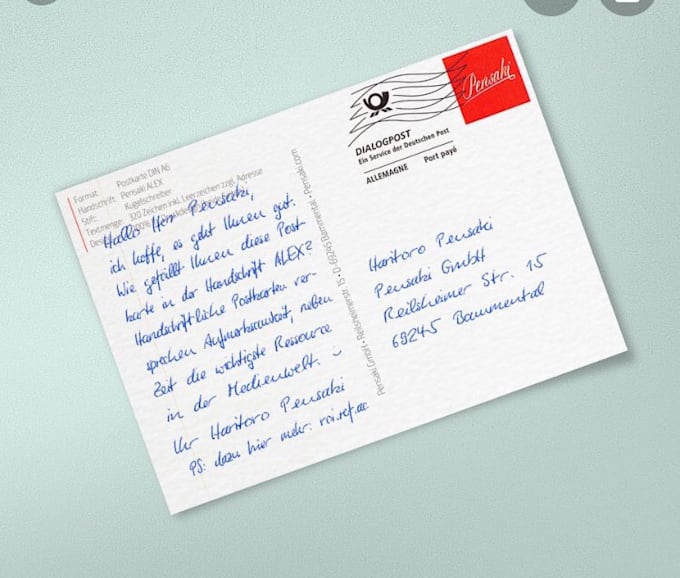 Format: Postkarte DIN A6
Handschrift: Pensaki ALEX
Stift: Kugelschreiber
Textmenge: 320 Zeichen inkl. Leerzeichen zzgl. Adresse
Hallo Herr Pensaki,
ich hoffe, es geht Ihnen gut.
Wie gefällt Ihnen diese Post-
karte in der Handschrift ALEX?
Handschriftliche Postkarten ver-
sprechen Aufmerksamkeit, neben
Zeit die wichtigste Ressource
in der Medienwelt. :-)
Ihr Haritoro Pensaki
PS: dazu hier mehr: roi.ref.ac
Pensaki GmbH • Reilsheimerstr. 15 • D-69245 Bammental • Pensaki.com
DIALOGPOST
Ein Service der Deutschen Post
ALLEMAGNE Port payé
Pensaki
Haritoro Pensaki
Pensaki GmbH
Reilsheimer Str. 15
69245 Bammental